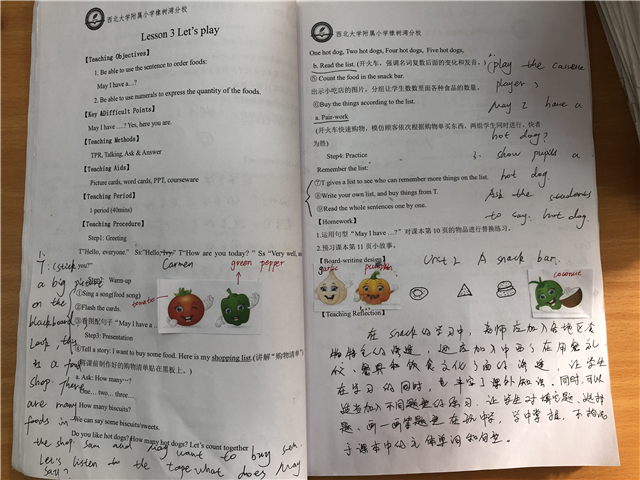 西北大学附属小学橡树湾分校
Lesson 3 Let's play
【Teaching Objectives】
1. Be able to use the sentence to order foods:
May I have a...?
2. Be able to use numerals to express the quantity of the foods.
【Key &Difficult Points】
May I have ....? Yes, here you are.
【Teaching Methods】
TPR, Talking, Ask & Answer
【Teaching Aids】
Picture cards, word cards, PPT, courseware
【Teaching Period】
1 period (40mins)
【Teaching Procedure】
Step1: Greeting
T"Hello, everyone." Ss:"Hello, " T"How are you today?" Ss "Very well,
you?"
Carmen
green pepper
Warm-up
①Sing a song(food song)
tomato
②Flash the cards.
③看图配句子"May I have a
Step3: Presentation
④Tell a story: I want to buy some food. Here is my shopping list.(讲解"购物清单"
课前制作好的购物清单贴在黑板上。)
a. Ask: How many~?
One... two... three...
How many biscuits?
We can say some biscuits/sweets.
Do you like hot dogs? How many hot dogs? Let's count together
T: (stick
a big picture
on the
blackboard
Look, this
is a food
shop. there
are many
foods in
the shop Sam and Amy want to buy
Let's listen to the tape what does Amy
say?
西北大学附属小学橡树湾分校
One hot dog, Two hot dogs, Four hot dogs, Five hot dogs,
b. Read the list. (开火车，强调名词复数后面的变化和发音。)
⑤Count the food in the snack bar.
出示小吃店的图片，分组让学生数数里面各种食品的数量。
⑥Buy the things according to the list.
a. Pair-work
(开火车快速购物，模仿顾客依次根据购物单买东西，两组学生同时进行，快者
为胜)
Step4: Practice
Remember the list:
⑦T gives a list to see who can remember more things on the list.
⑧Write your own list, and buy things from T.
⑨Read the whole sentences one by one.
(play the cassette
player)
May I have a
hot dog?
3. show pupils a
hot dog.
Ask the students
to say. hot dog.
【Homework】
1.运用句型"May I have ...?" 对课本第 10 页的物品进行替换练习。
2.预习课本第 11 页小故事。
【Board-writing design】
Unit 2 A snack bar.
garlic
pumpkin
coconut
【Teaching Reflection】
在 snack 的学习中，老师应加入各地区食
物特色的渗透，还应加入中西方在用餐礼
仪、餐具和饮食文化方面的渗透，让学生
在学习的同时，也丰富了课外知识。同时，可以
适当加入不同题型的练习，让学生对填空题、选择
题、画一画等题型在玩中学，学中掌握，不拘泥
于课本中的单词和句型。